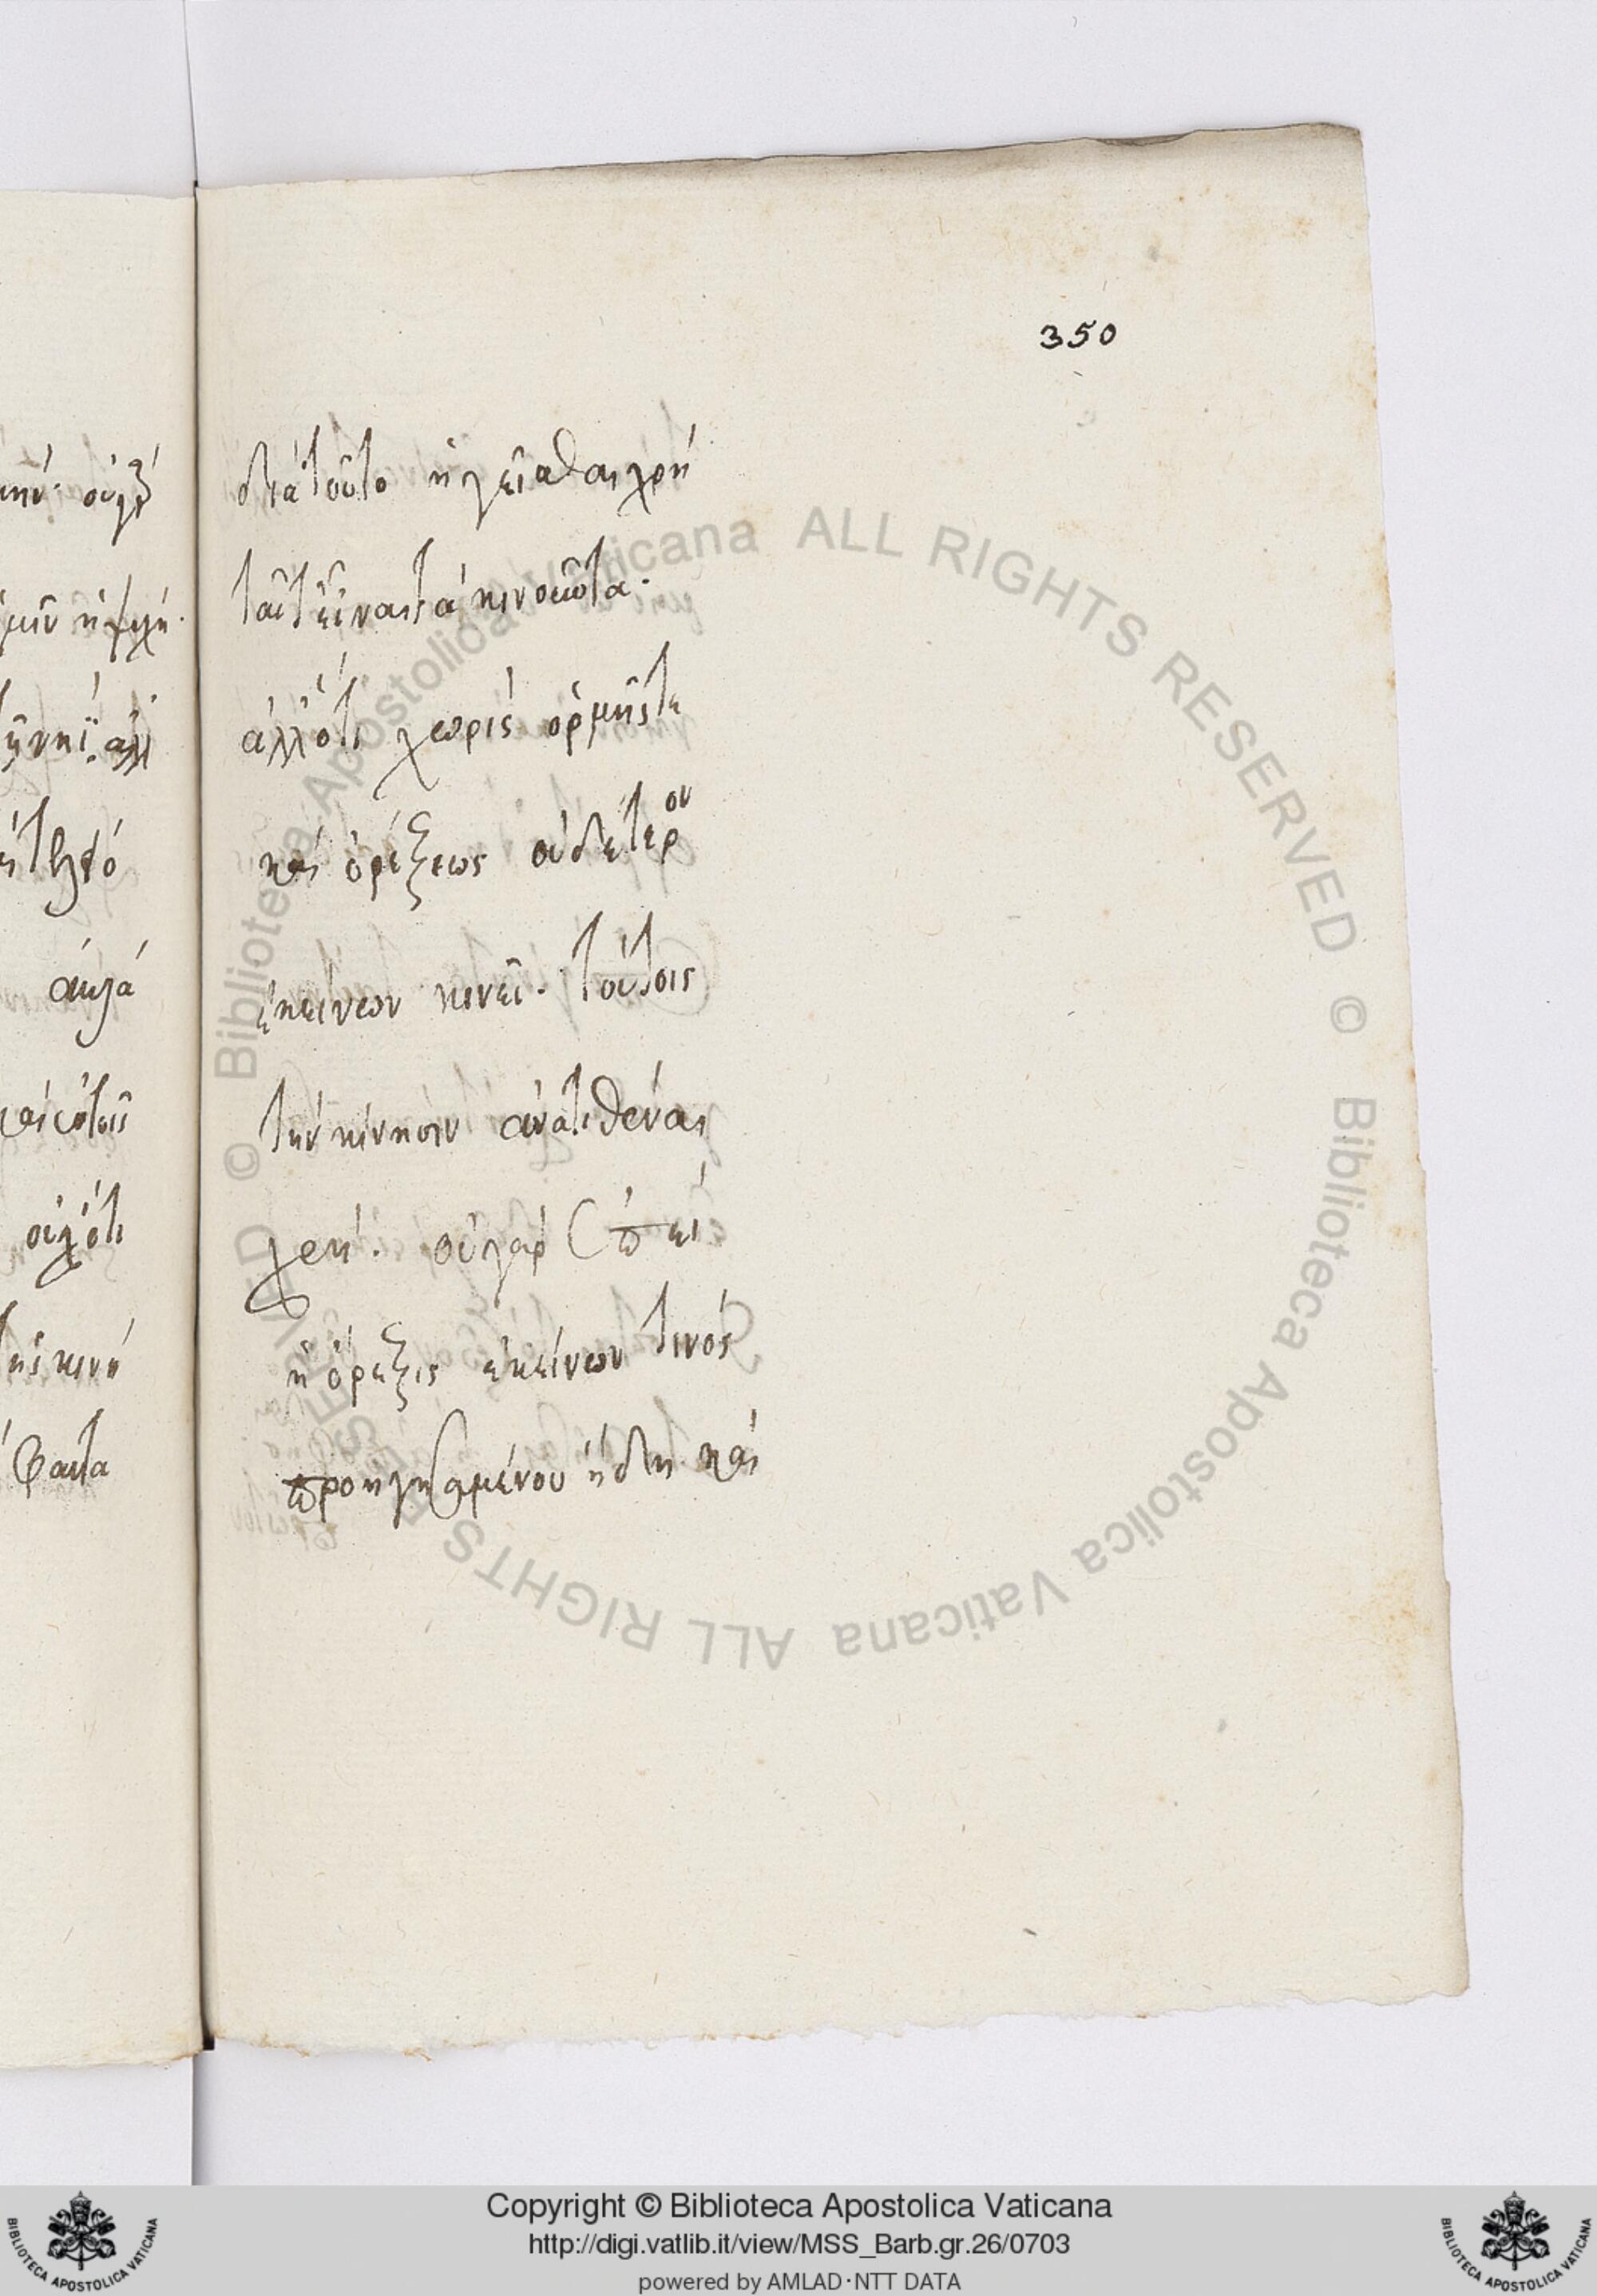 350
διά τοῦτο ἡγεῖσθαι χρή
ταῦτ εἶναι τά κινοῦντα.
ἀλλ ὅτι χωρίς ὁρμῆς τε
καί ὀρέξεως οὐδέτερον
ἐκείνων κινεῖ. τούτοις
τήν κίνησιν ἀνατιθέναι
χρή. οὐ γάρ ἐπεί
ἡ ὄρεξις ἐκείνων τινός
προηγησαμένου ἤδη καί
Copyright © Biblioteca Apostolica Vaticana
http://digi.vatlib.it/view/MSS_Barb.gr.26/0703
powered by AMLAD·NTT DATA
BIBLIOTECA APOSTOLICA VATICANA
BIBLIOTECA APOSTOLICA VATICANA
© Biblioteca Apostolica Vaticana ALL RIGHTS RESERVED © Biblioteca Apostolica Vaticana ALL RIGHTS RESERVED